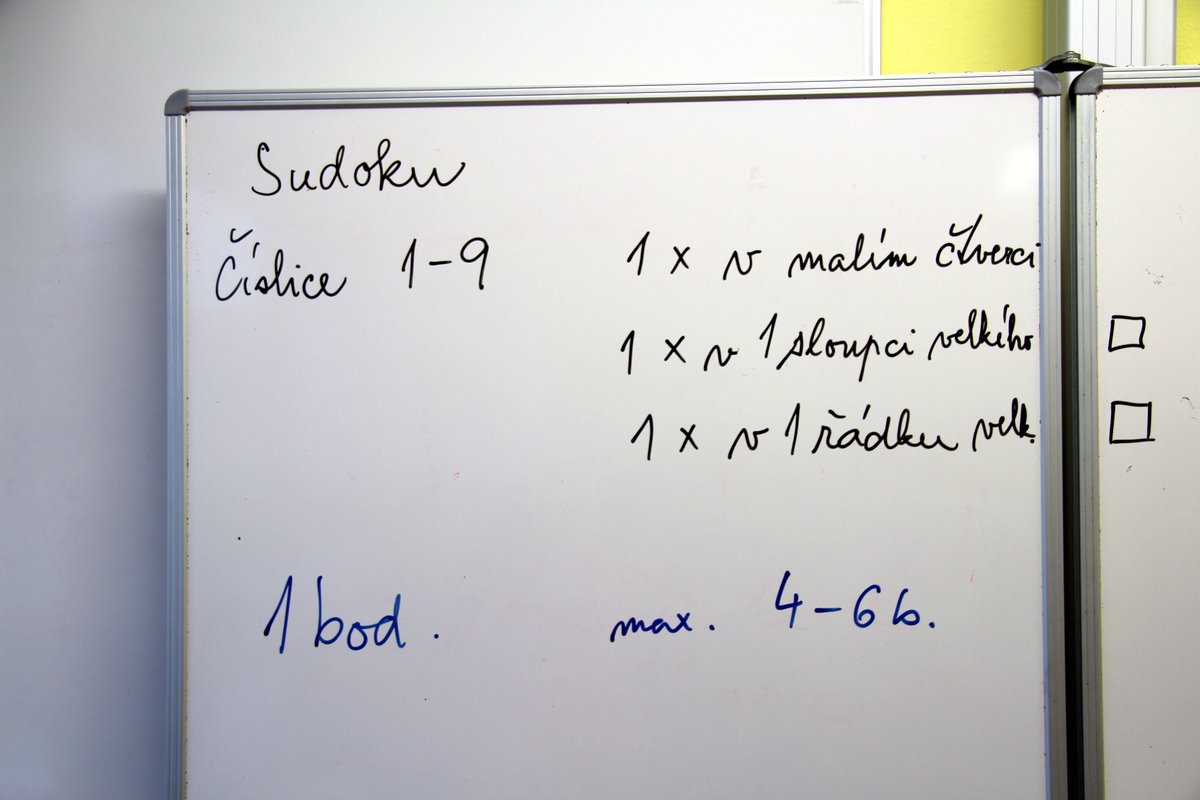 Sudoku
Číslice 1-9 1 x v malím čtverci
1 x v 1 sloupci velkího □
1 x v 1 řádku velk. □
1 bod. max. 4-6 b.